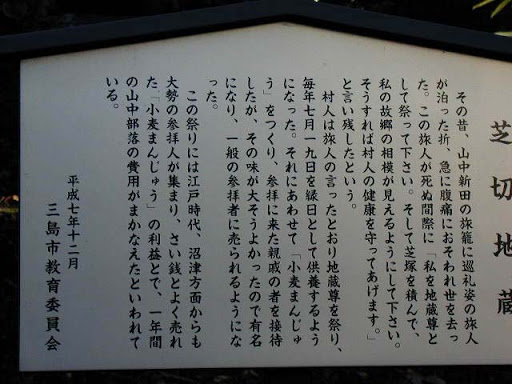 芝切地蔵
その昔、山中新田の旅籠に巡礼姿の旅人
が泊った折、急に腹痛におそわれ世を去っ
た。この旅人が死ぬ間際に「私を地蔵尊と
して祭って下さい。そして芝塚を積んで、
私の故郷の相模が見えるようにして下さい。
そうすれば村人の健康を守ってあげます。」
と言い残したという。
村人は旅人の言ったとおり地蔵尊を祭り、
毎年七月一九日を縁日として供養するよう
になった。それにあわせて「小麦まんじゅ
う」をつくり、参拝に来た親戚の者を接待
したが、その味が大そうよかったので有名
になり、一般の参拝者に売られるようにな
った。
この祭りには江戸時代、沼津方面からも
大勢の参拝人が集まり、さい銭とよく売れ
た「小麦まんじゅう」の利益とで、一年間
の山中部落の費用がまかなえたといわれて
いる。
平成七年十二月
三島市教育委員会